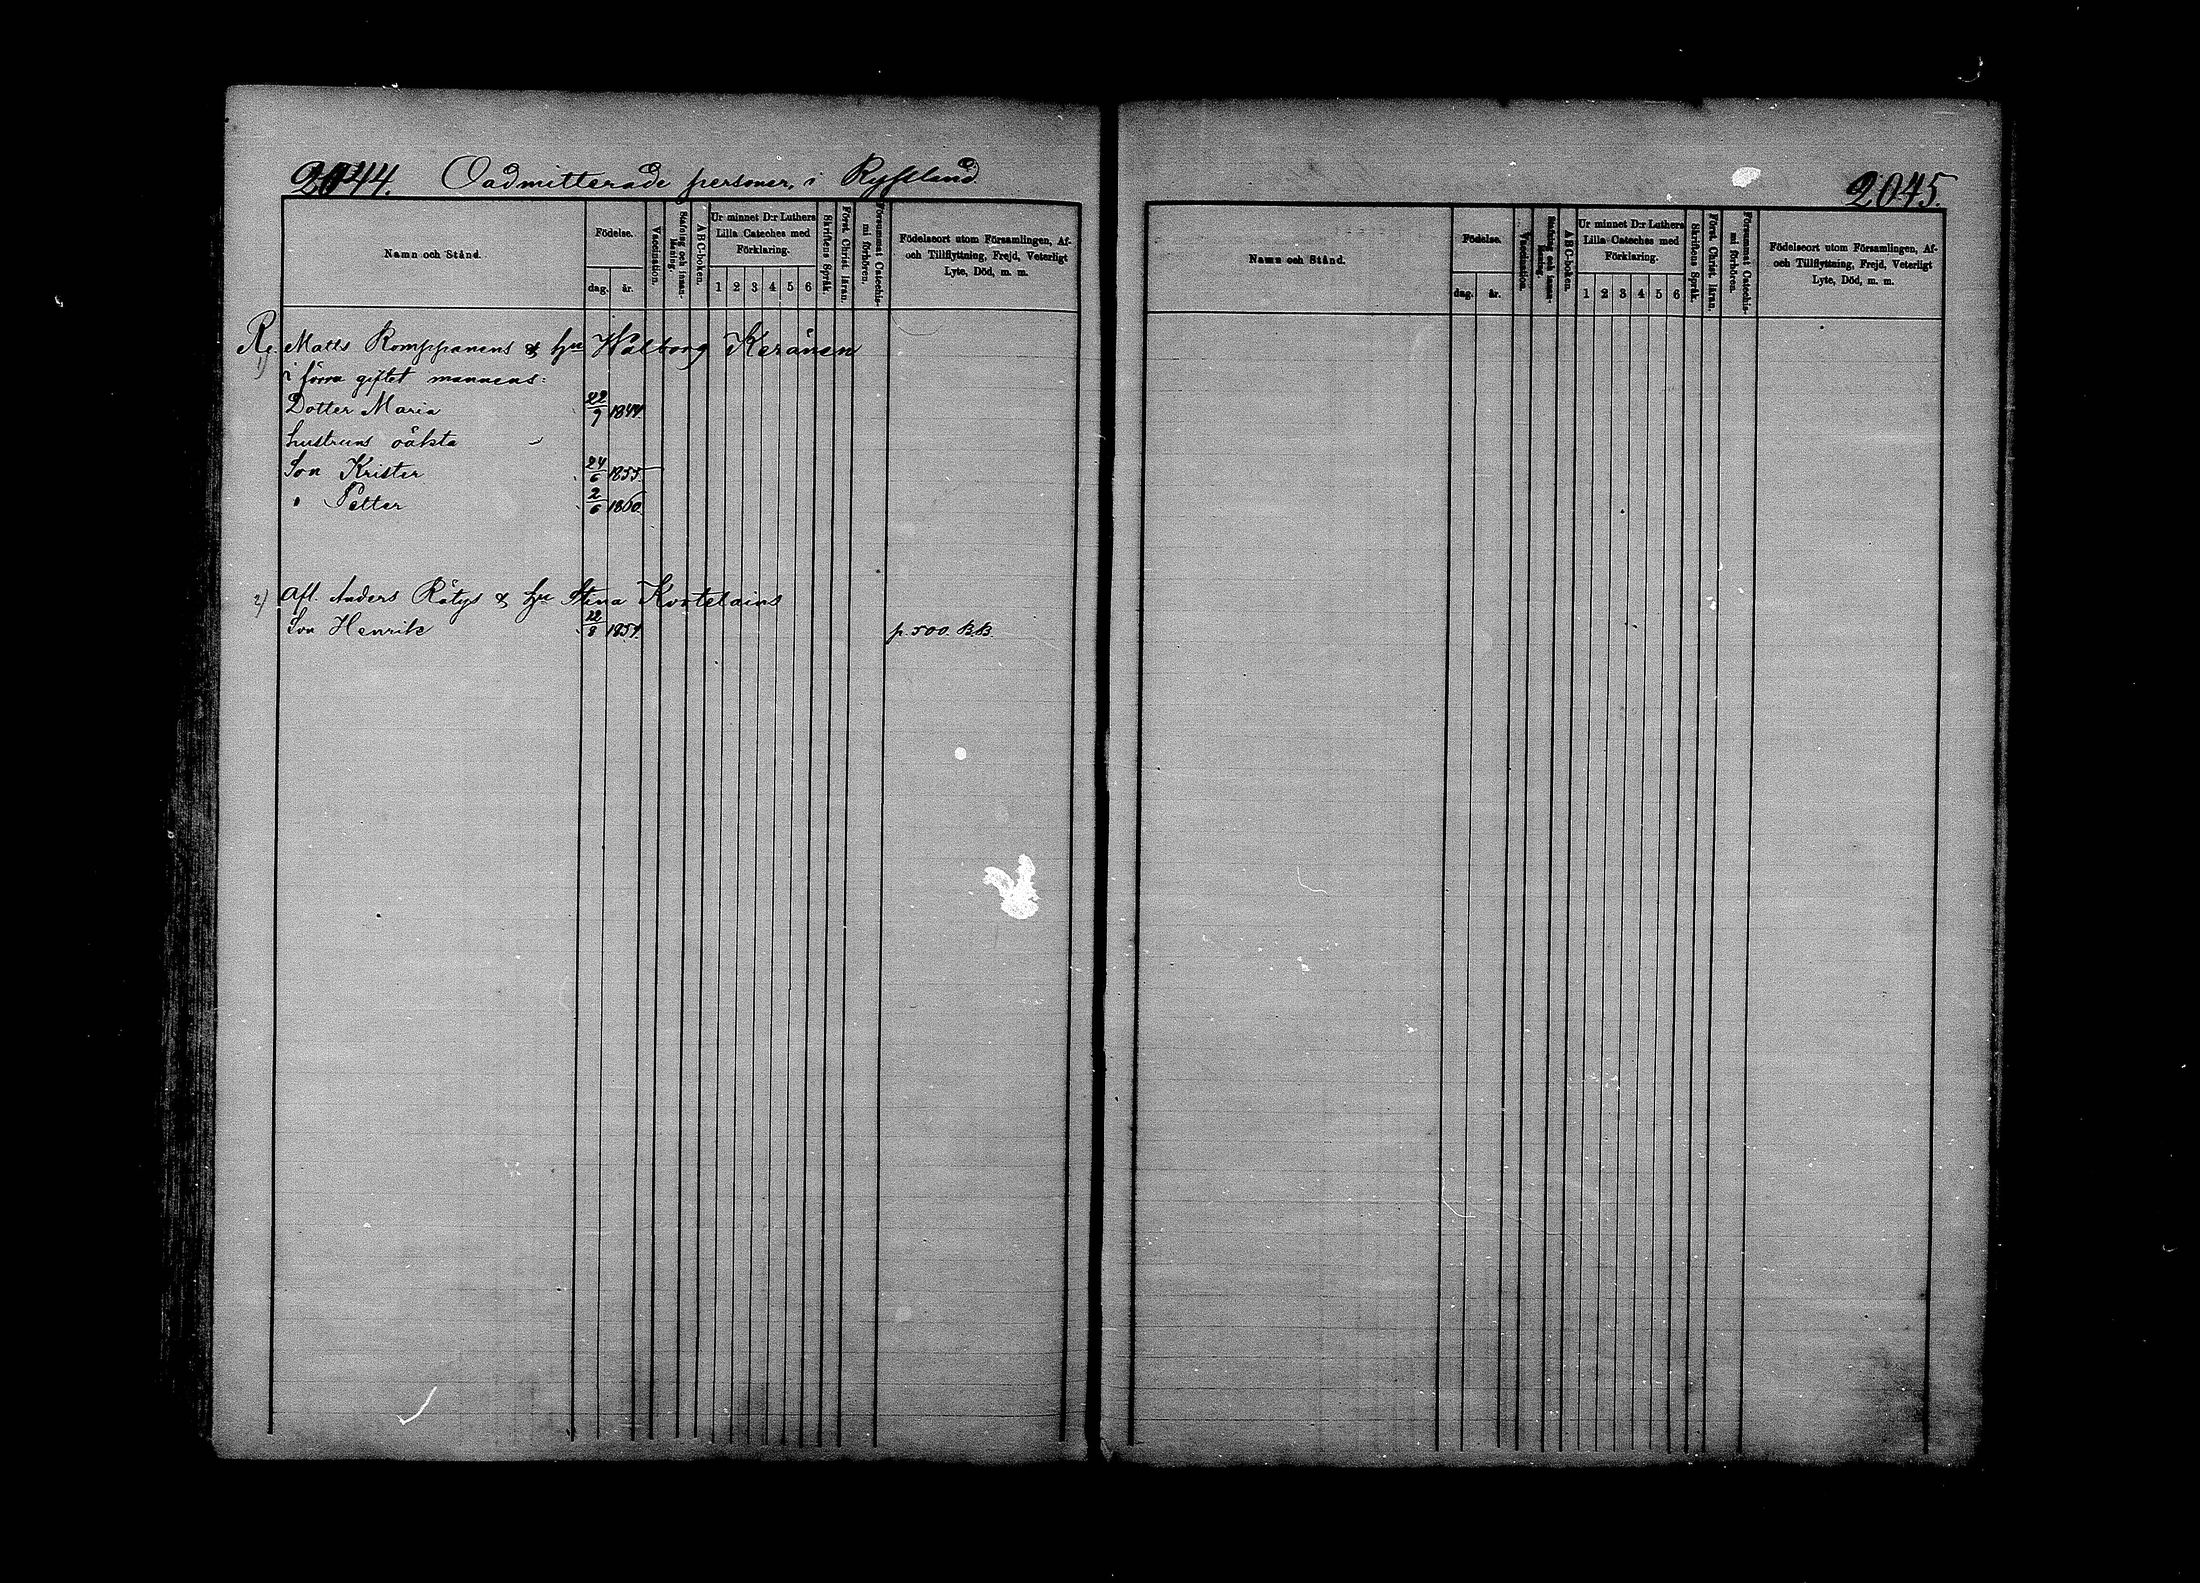 2044. Oadmitterade personer, i Ryssland.
Namn och Stånd.
Födelse.
dag. år.
Vaccination.
Stafning och innan-
läsning.
ABC-boken.
Ur minnet D:r Luthers
Lilla Cateches med
Förklaring.
1 2 3 4 5 6
Skriftens Språk.
Först. Christ. läran.
Försummat Catechis-
mi förhören.
Födelseort utom Församlingen, Af-
och Tillflyttning, Frejd, Veterligt
Lyte, Död, m. m.
1) Matts Romppanens & hu Walborg Keränen
i förra giftet mannens:
Dotter Maria 22/9 1844
hustruns oäkta
Son Krister 24/6 1855
" Petter 2/6 1860.
2) Afl. Anders Rätys & hu Stina Kortelains
Son Henrik 22/8 1854. p. 500. B.B.
2045.
Namn och Stånd.
Födelse.
dag. år.
Vaccination.
Stafning och innan-
läsning.
ABC-boken.
Ur minnet D:r Luthers
Lilla Cateches med
Förklaring.
1 2 3 4 5 6
Skriftens Språk.
Först. Christ. läran.
Försummat Catechis-
mi förhören.
Födelseort utom Församlingen, Af-
och Tillflyttning, Frejd, Veterligt
Lyte, Död, m. m.